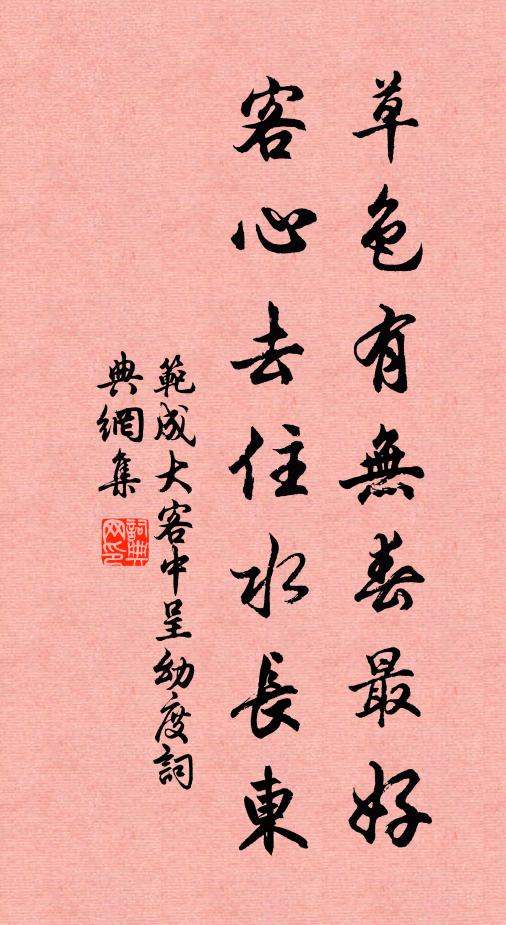 草色有無春最好
客心去住水長東
範成大客中呈幼度詞
典網集
詞典
网印